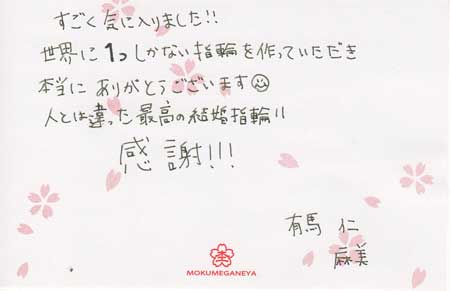 すごく気に入りました!!
世界に1つしかない指輪を作っていただき
本当にありがとうございます☺
人とは違った最高の結婚指輪!!
感謝!!!
有馬 仁
麻美
MOKUMEGANEYA